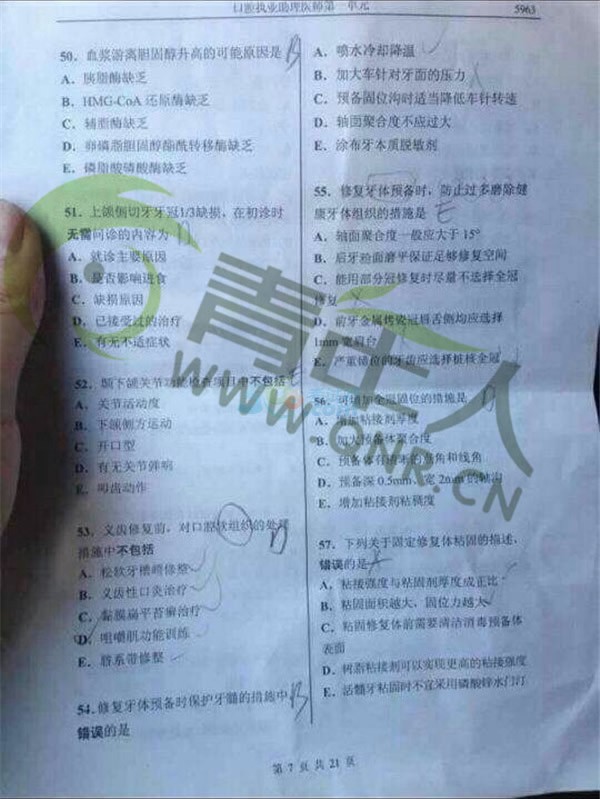 口腔执业助理医师第一单元
5963
50．血浆游离胆固醇升高的可能原因是 B
A．胰脂酶缺乏
B．HMG-CoA 还原酶缺乏
C．辅脂酶缺乏
D．卵磷脂胆固醇酯酰转移酶缺乏
E．磷脂酸磷酸酶缺乏
51．上颌侧切牙牙冠1/3缺损，在初诊时
无需问诊的内容为 D
A．就诊主要原因
B．是否影响进食
C．缺损原因
D．已接受过的治疗
E．有无不适症状
52．颞下颌关节功能检查项目中不包括 E
A．关节活动度
B．下颌侧方运动
C．开口型
D．有无关节弹响
E．叩齿动作
53．义齿修复前，对口腔软组织的处理 D
措施中不包括
A．松软牙槽嵴修整
B．义齿性口炎治疗
C．黏膜扁平苔癣治疗
D．咀嚼肌功能训练
E．唇系带修整
54．修复牙体预备时保护牙髓的措施中 B
错误的是
A．喷水冷却降温
B．加大车针对牙面的压力
C．预备固位沟时适当降低车针转速
D．轴面聚合度不应过大
E．涂布牙本质脱敏剂
55．修复牙体预备时，防止过多磨除健
康牙体组织的措施是 E
A．轴面聚合度一般应大于 15°
B．后牙𬌗面磨平保证足够修复空间
C．能用部分冠修复时尽量不选择全冠
修复
D．前牙金属烤瓷冠唇舌侧均应选择
1mm 宽肩台
E．严重错位的牙齿应选择桩核全冠
56．可增加全冠固位的措施是 D
A．增加粘接剂厚度
B．加大预备体聚合度
C．预备体有清晰的点角和线角
D．预备深 0.5mm、宽 2mm 的轴沟
E．增加粘接剂粘稠度
57．下列关于固定修复体粘固的描述，
错误的是 A
A．粘接强度与粘固剂厚度成正比
B．粘固面积越大，固位力越大
C．粘固修复体前需要清洁消毒预备体
表面
D．树脂粘接剂可以实现更高的粘接强度
E．活髓牙粘固时不宜采用磷酸锌水门汀
第 7 页 共 21 页
青年人
WWW.QNR.CN